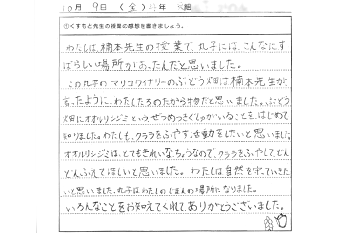 10月 9日 (金) 4年 組
①くすもと先生の授業の感想を書きましょう。
わたしは、楠本先生の授業で、丸子には、こんなにす
ばらしい場所があったんだと思いました。
この丸子のマリコワイナリーのぶどう畑は楠本先生が
言ったように、わたしたちのたから物だと思いました。ぶどう
畑にオオルリシジミという、ぜつめつきぐしゅがいることをはじめて
知りました。わたしも、クララをふやす活動をしたいと思いました。
オオルリシジミは、とてもきれいなちょうなので、クララをふやしてどん
どんふえてほしいと思いました。わたしは自然を守っていきた
いと思いました。丸子はわたしのじまんの場所になりました。
いろんなことをおしえてくれてありがとうございました。